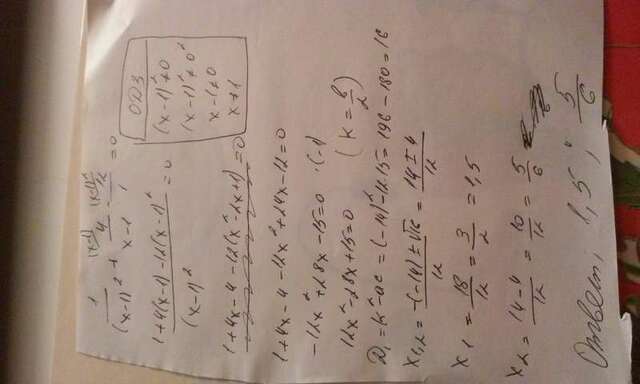 1/(x-1)² + 4/(x-1) - 12/1 = 0
ОДЗ
(x-1)² ≠ 0
(x-1)² ≠ 0²
x-1 ≠ 0
x ≠ 1
(1+4(x-1)-12(x-1)²)/(x-1)² = 0
1+4x-4-12(x²-2x+1)=0
1+4x-4-12x²+24x-12=0
-12x²+28x-15=0 ·(-1)
12x²-28x+15=0 (k=b/2)
D₁=k²-ac=(-14)²-12·15=196-180=16
x₁,₂=(-(-14)±√16)/12=(14±4)/12
x₁=18/12=3/2=1,5
x₂=(14-4)/12=10/12=5/6
Ответ: 1,5; 5/6